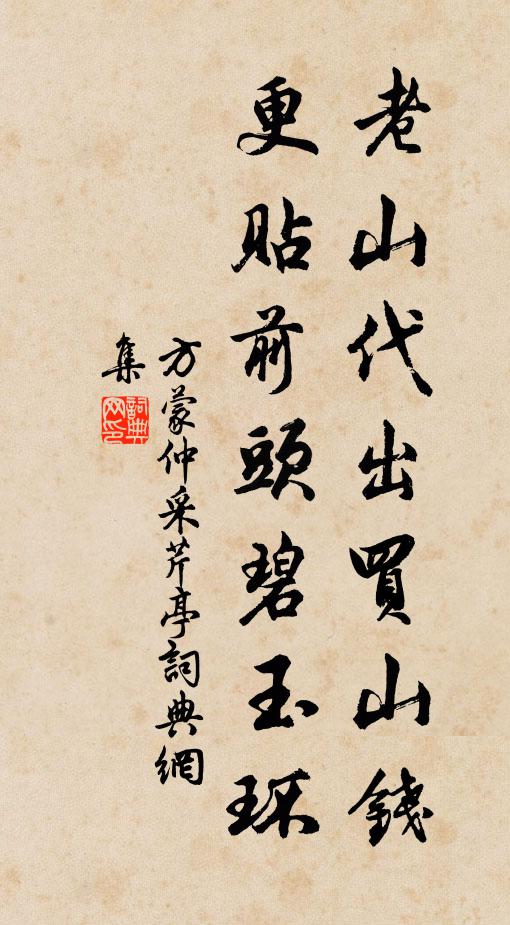 老山代出買山錢
更貼前頭碧玉環
方蒙仲采芹亭詞典網
集
詞典网印